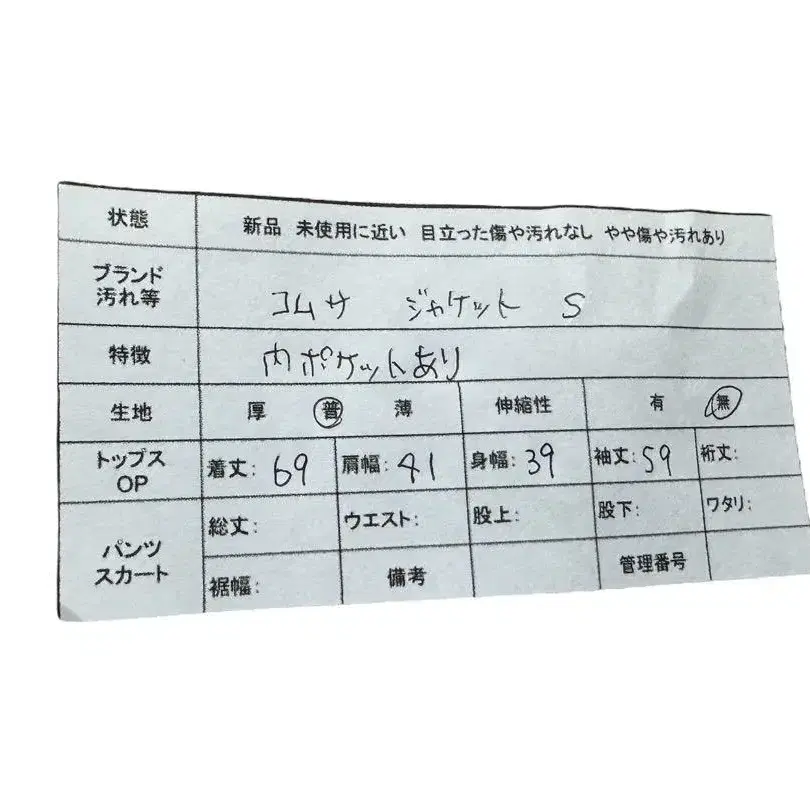 状態 新品 未使用に近い 目立った傷や汚れなし やや傷や汚れあり
ブランド
汚れ等
コムサ ジャケット S
特徴 内ポケットあり
生地 厚 普 薄 伸縮性 有 無
トップス
OP
着丈: 69 肩幅: 41 身幅: 39 袖丈: 59 裄丈:
パンツ
スカート
総丈: ウエスト: 股上: 股下: ワタリ:
裾幅: 備考 管理番号